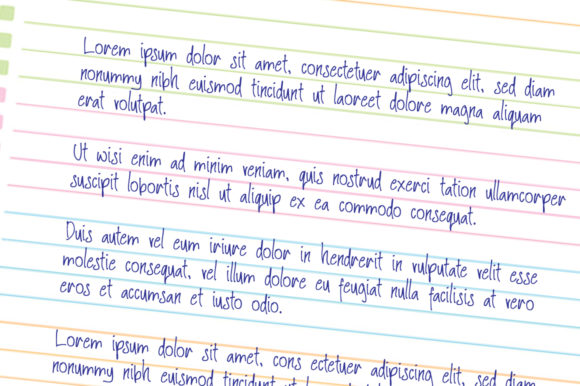 Lorem ipsum dolor sit amet, consectetuer adipiscing elit, sed diam
nonummy nibh euismod tincidunt ut laoreet dolore magna aliquam
erat volutpat.
Ut wisi enim ad minim veniam, quis nostrud exerci tation ullamcorper
suscipit lobortis nisl ut aliquip ex ea commodo consequat.
Duis autem vel eum iriure dolor in hendrerit in vulputate velit esse
molestie consequat, vel illum dolore eu feugiat nulla facilisis at vero
eros et accumsan et iusto odio.
Lorem ipsum dolor sit amet, cons ectetuer adipiscing elit, sed diam
nonummy nibh euismod tincidunt ut